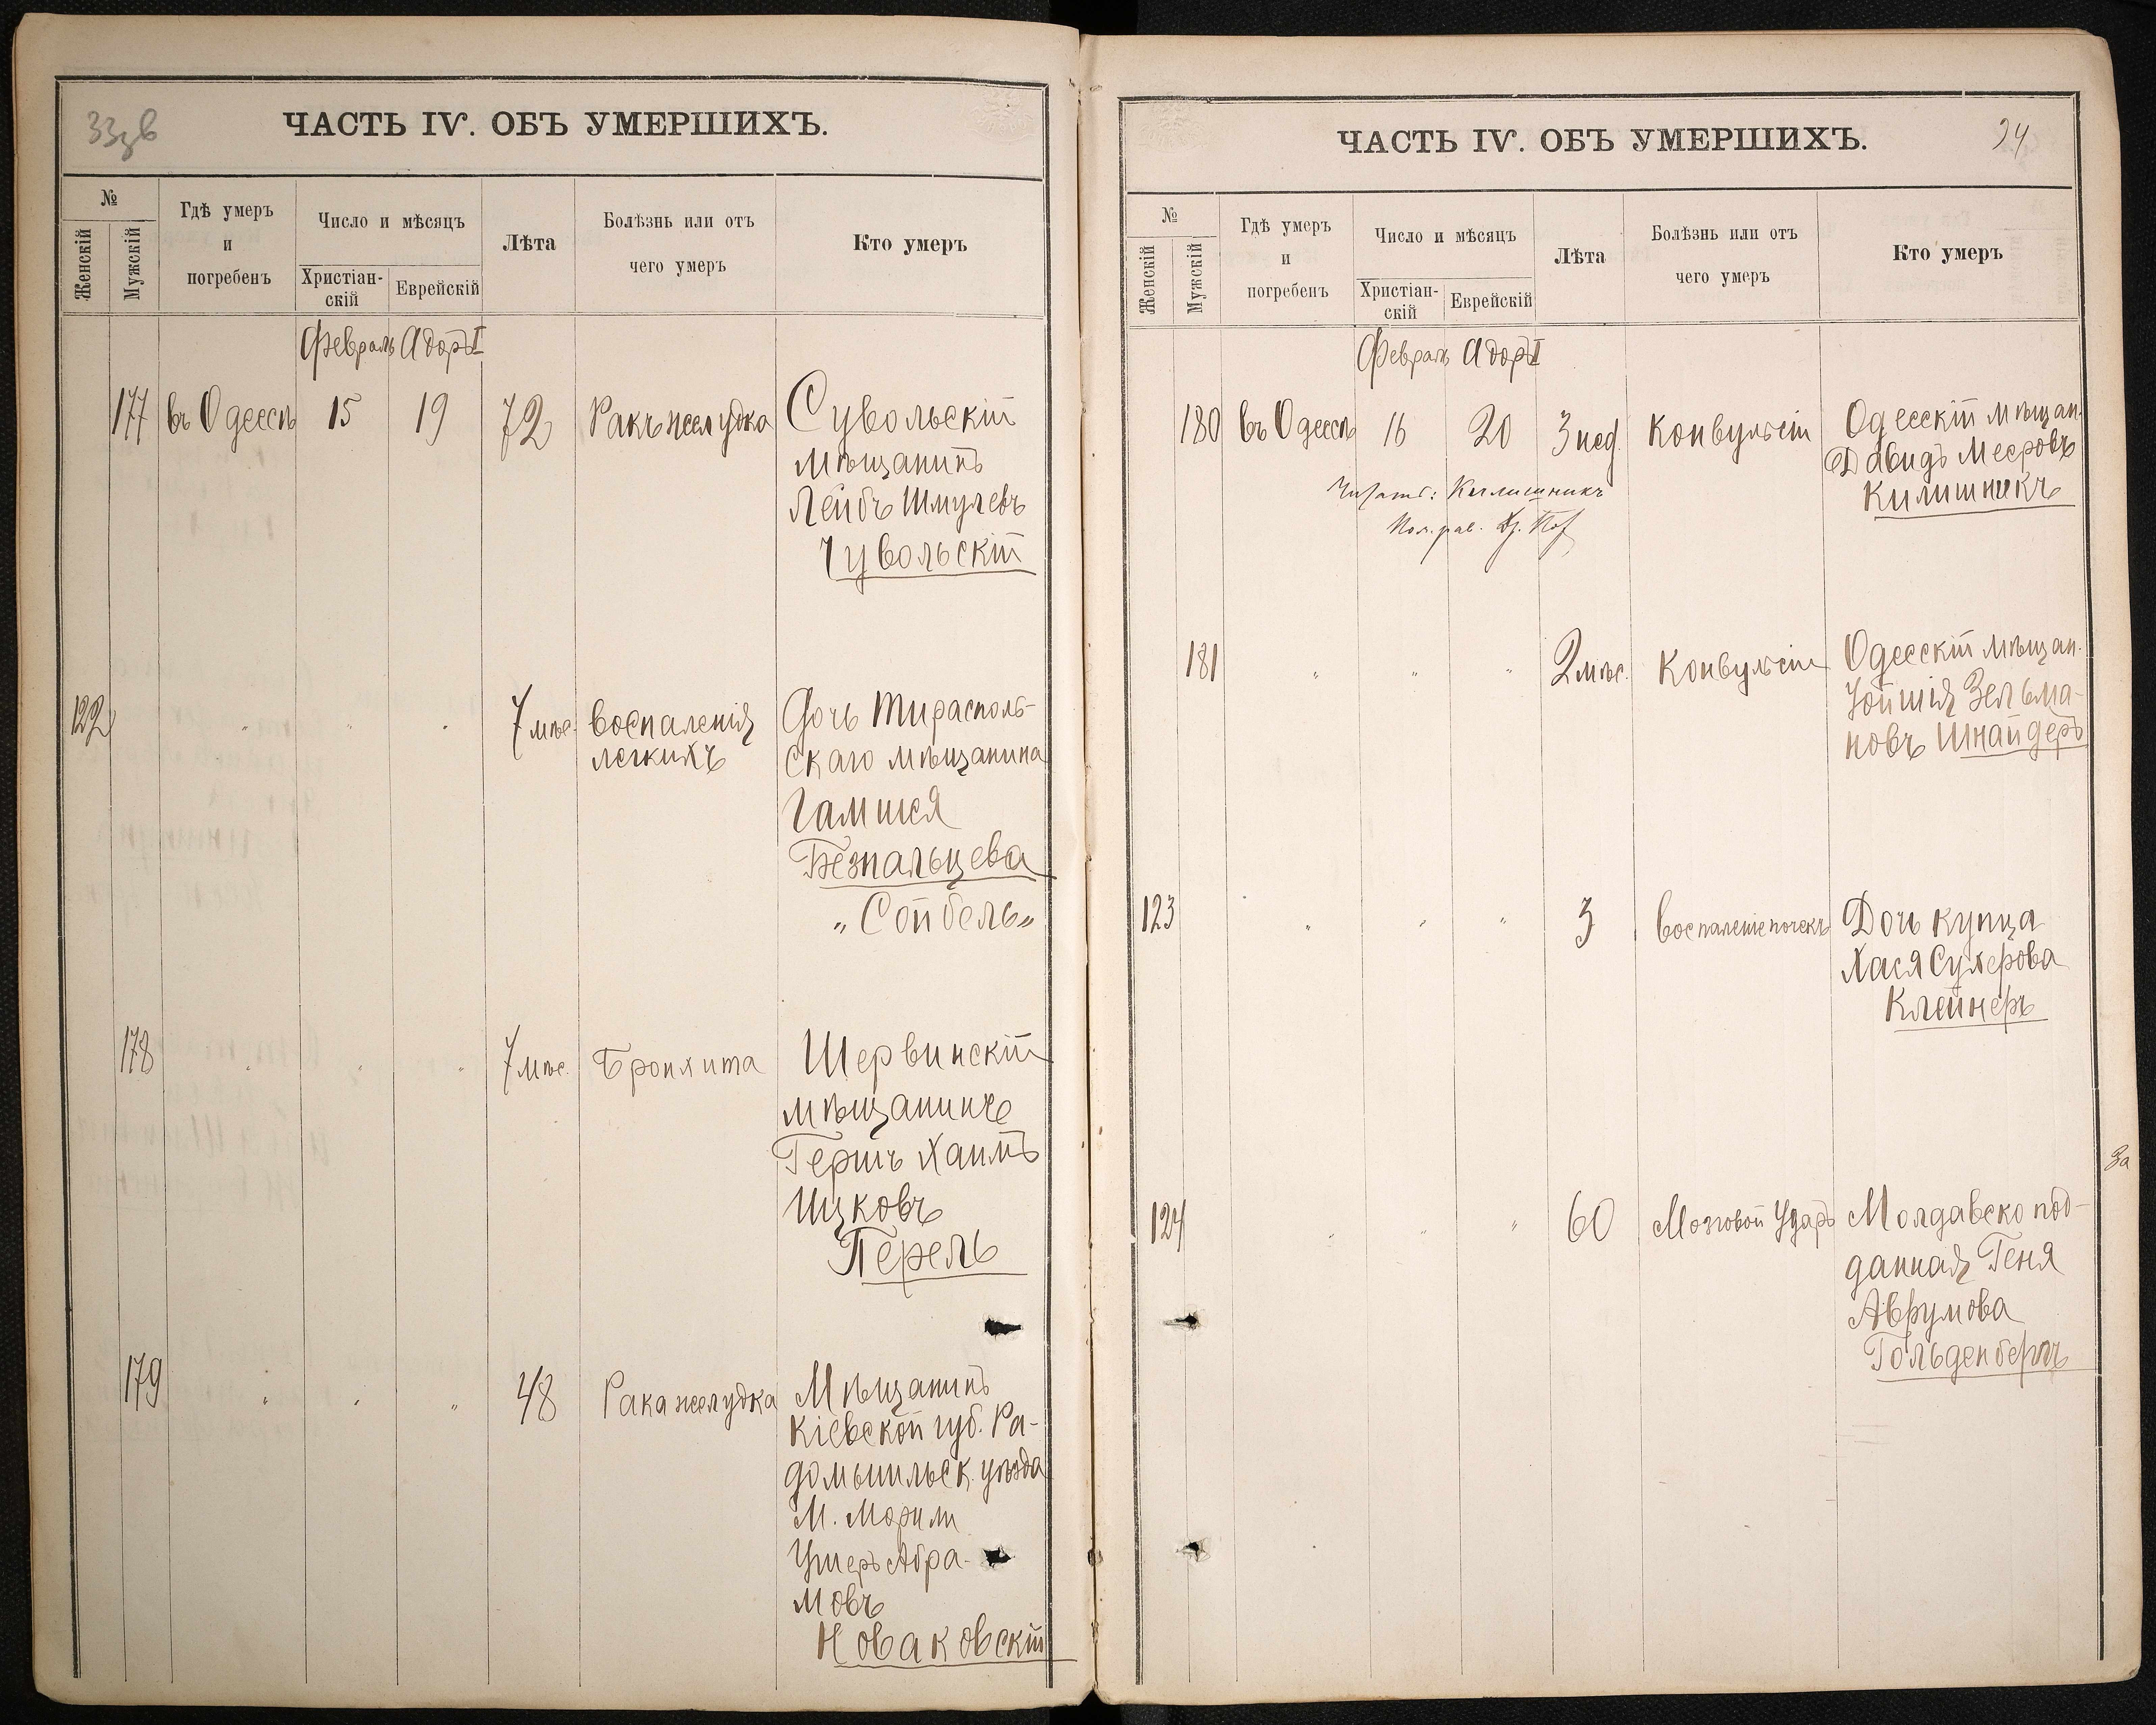 33зв
ЧАСТЬ IV. ОБЪ УМЕРШИХЪ.
№
Женскій
Мужскій
Гдѣ умеръ
и
погребенъ
Число и мѣсяцъ
Христіан-
скій
Еврейскій
Лѣта
Болѣзнь или отъ
чего умеръ
Кто умеръ
Февраль Адоръ I
177 въ Одессѣ 15 19 72 Ракъ желудка Сувольскій
мѣщанинъ
Лейбъ Шмулевъ
Чувольскій
122 " " " 7 мѣс. Воспаленія Дочь Тирасполь-
легкихъ скаго мѣщанина
Безпальцева
„Сойбель„
178 " " " 7 мѣс. Бронхита Шервинскій
мѣщанинъ
Гершъ Хаимъ
Ицковъ
Перель
179 " " " 48 Рака желудка Мѣщанинъ
Кіевской губ. Ра-
домысльск. уѣзда
М.
Ушеръ Абра-
мовъ
Новаковскій
ЧАСТЬ IV. ОБЪ УМЕРШИХЪ.
34
№
Женскій
Мужскій
Гдѣ умеръ
и
погребенъ
Число и мѣсяцъ
Христіан-
скій
Еврейскій
Лѣта
Болѣзнь или отъ
чего умеръ
Кто умеръ
Февраль Адоръ I
180 въ Одессѣ 16 20 3 нед. Конвульсіи Одесскій мѣщан.
Давидъ Мееровъ
Килишникъ
Читать: Киглишникъ
181 " " " 2 мѣс. Конвульсіи Одесскій мѣщан.
Зельма-
новъ Шнайдеръ
123 " " " 3 Воспаленіе почекъ Дочь купца
Хася Сухерова
Клейнеръ
124 " " " 60 Мозговой ударъ Молдавско под-
данная Геня
Аврумова
Гольденбергъ
За